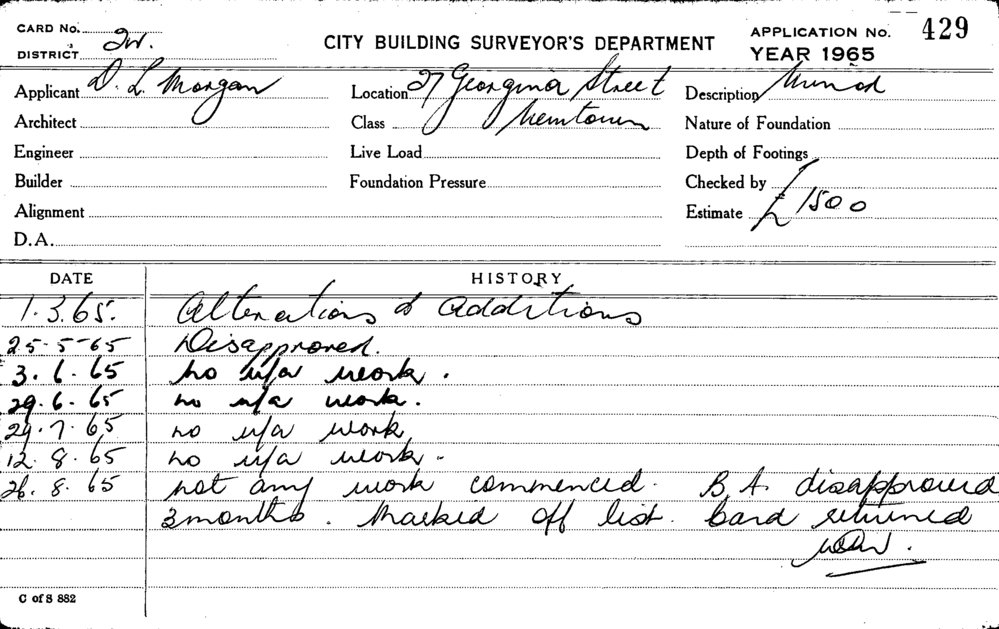 CARD No.
DISTRICT. 2w.
CITY BUILDING SURVEYOR'S DEPARTMENT
APPLICATION No. 429
YEAR 1965
Applicant D. L. Morgan
Location 27 Georgina Street
Description Minor
Architect
Class Newtown
Nature of Foundation
Engineer
Live Load
Depth of Footings
Builder
Foundation Pressure
Checked by
Alignment
Estimate £1500
D.A.
DATE HISTORY
1.3.65. Alterations & additions
25-5-65 Disapproved.
3.6.65 no u/a work.
29.6.65 no u/a work.
29.7.65 no u/a work
12.8.65 no u/a work.
26.8.65 not any work commenced. B.A. disapproved
3 months. Marked off list. Card returned
C of S 882